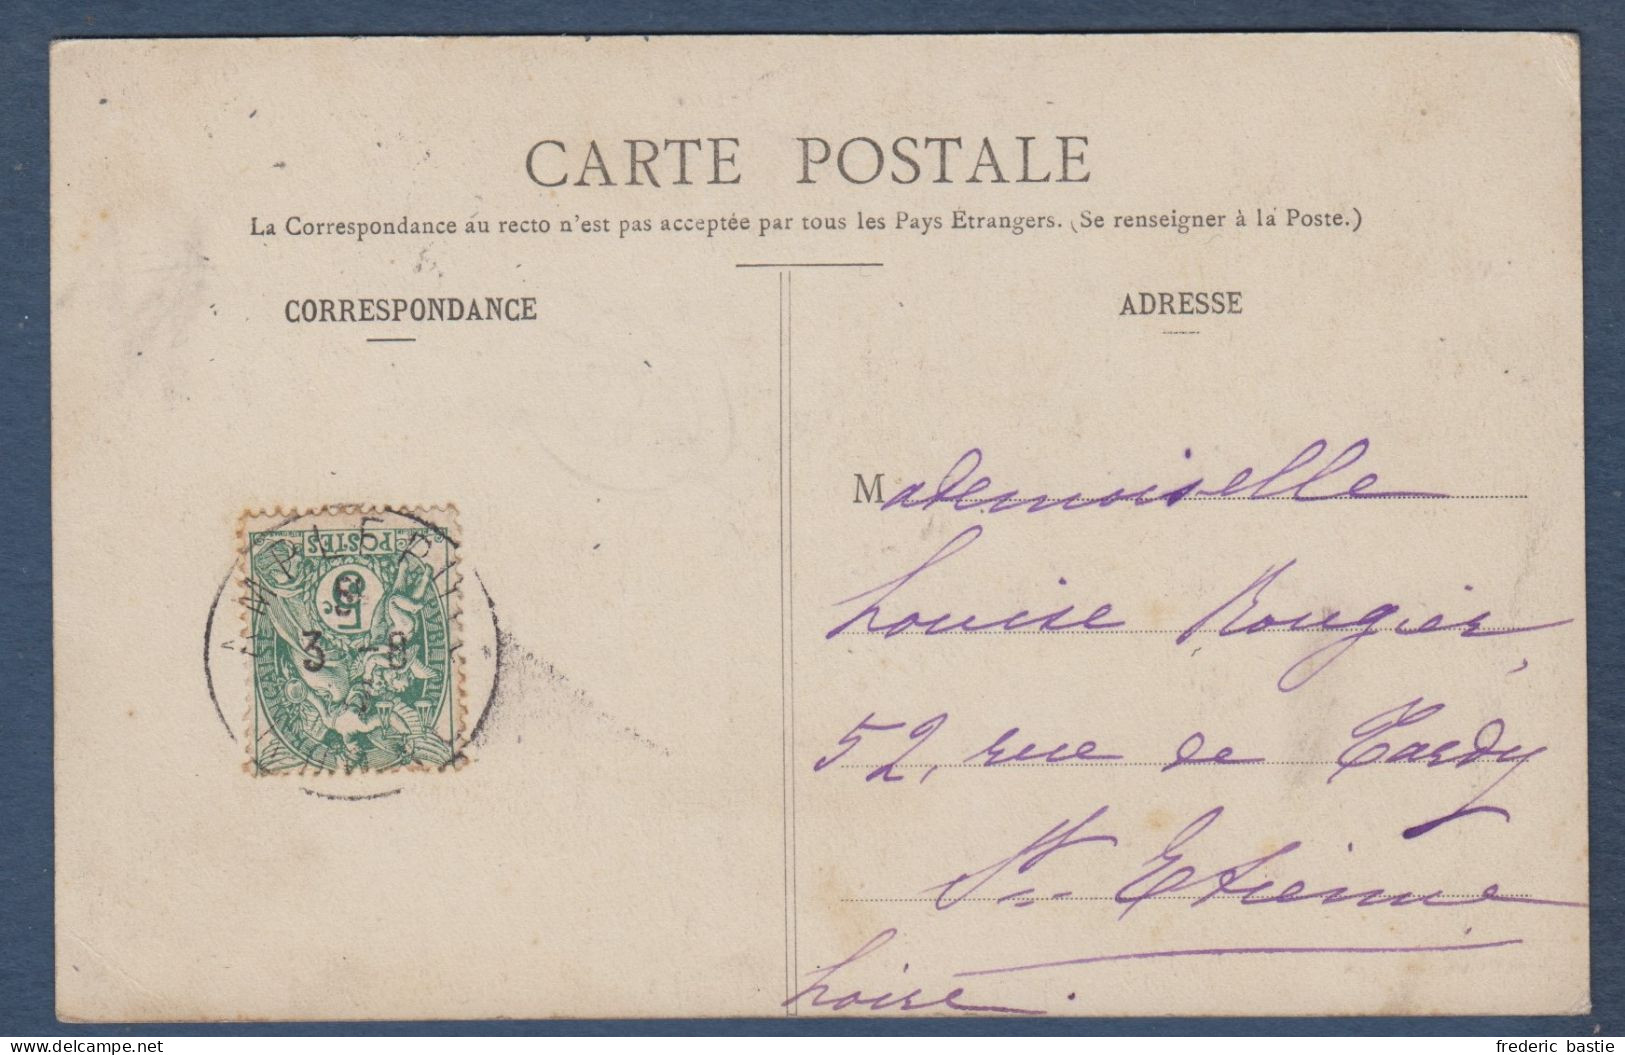 CARTE POSTALE
La Correspondance au recto n'est pas acceptée par tous les Pays Étrangers. (Se renseigner à la Poste.)
CORRESPONDANCE
ADRESSE
Mademoiselle
Louise Rougier,
52, rue de Tardy
St Etienne
Loire.
POSTES
5c
3 -8
delcampe.net
frederic bastie